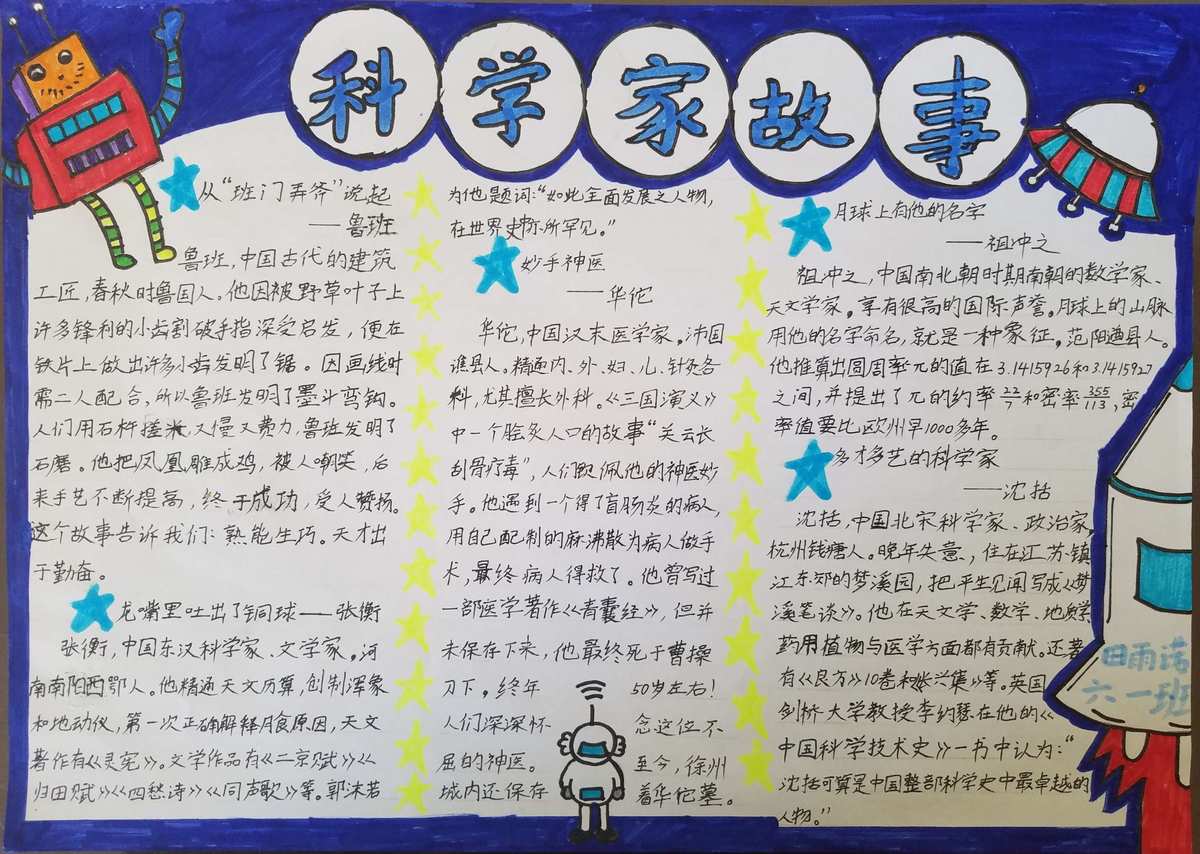 科学家故事
从“班门弄斧”说起
——鲁班
鲁班，中国古代的建筑
工匠，春秋时鲁国人。他因被野草叶子上
许多锋利的小齿割破手指深受启发，便在
铁片上做出许多小齿发明了锯。因画线时
需二人配合，所以鲁班发明了墨斗弯钩。
人们用石杵搓米，又慢又费力，鲁班发明了
石磨。他把凤凰雕成鸡，被人嘲笑，后
来手艺不断提高，终于成功，受人赞扬。
这个故事告诉我们：熟能生巧。天才出
于勤奋。
龙嘴里吐出了铜球——张衡
张衡，中国东汉科学家、文学家。河
南南阳西鄂人。他精通天文历算，创制浑象
和地动仪，第一次正确解释月食原因，天文
著作有《灵宪》。文学作品有《二京赋》《
归田赋》《四愁诗》《同声歌》等。郭沫若
为他题词：“如此全面发展之人物，
在世界史亦所罕见。”
妙手神医
——华佗
华佗，中国汉末医学家。沛国
谯县人。精通内、外、妇、儿、针灸各
科，尤其擅长外科。《三国演义》
中一个脍炙人口的故事“关云长
刮骨疗毒”，人们佩他的神医妙
手。他遇到一个得了盲肠炎的病人，
用自己配制的麻沸散为病人做手
术，最终病人得救了。他曾写过
一部医学著作《青囊经》，但并
未保存下来，他最终死于曹操
刀下。终年50岁左右！
人们深深怀念这位不
屈的神医。至今，徐州
城内还保存着华佗墓。
月球上有他的名字
——祖冲之
祖冲之，中国南北朝时期南朝的数学家、
天文学家。享有很高的国际声誉。月球上的山脉
用他的名字命名，就是一种象征。范阳遒县人。
他推算出圆周率π的值在3.1415926和3.1415927
之间，并提出了π的约率22/7和密率355/113，密
率值要比欧州早1000多年。
多才多艺的科学家
——沈括
沈括，中国北宋科学家、政治家，
杭州钱塘人。晚年失意、住在江苏镇
江东郊的梦溪园，把平生见闻写成《梦
溪笔谈》。他在天文学、数学、地质学
药用植物与医学方面都有贡献。还著
有《良方》10卷和《长兴集》等。英国
剑桥大学教授李约瑟在他的《
中国科学技术史》一书中认为：“
沈括可算是中国整部科学史中最卓越的
人物。”
田雨诺
六一班